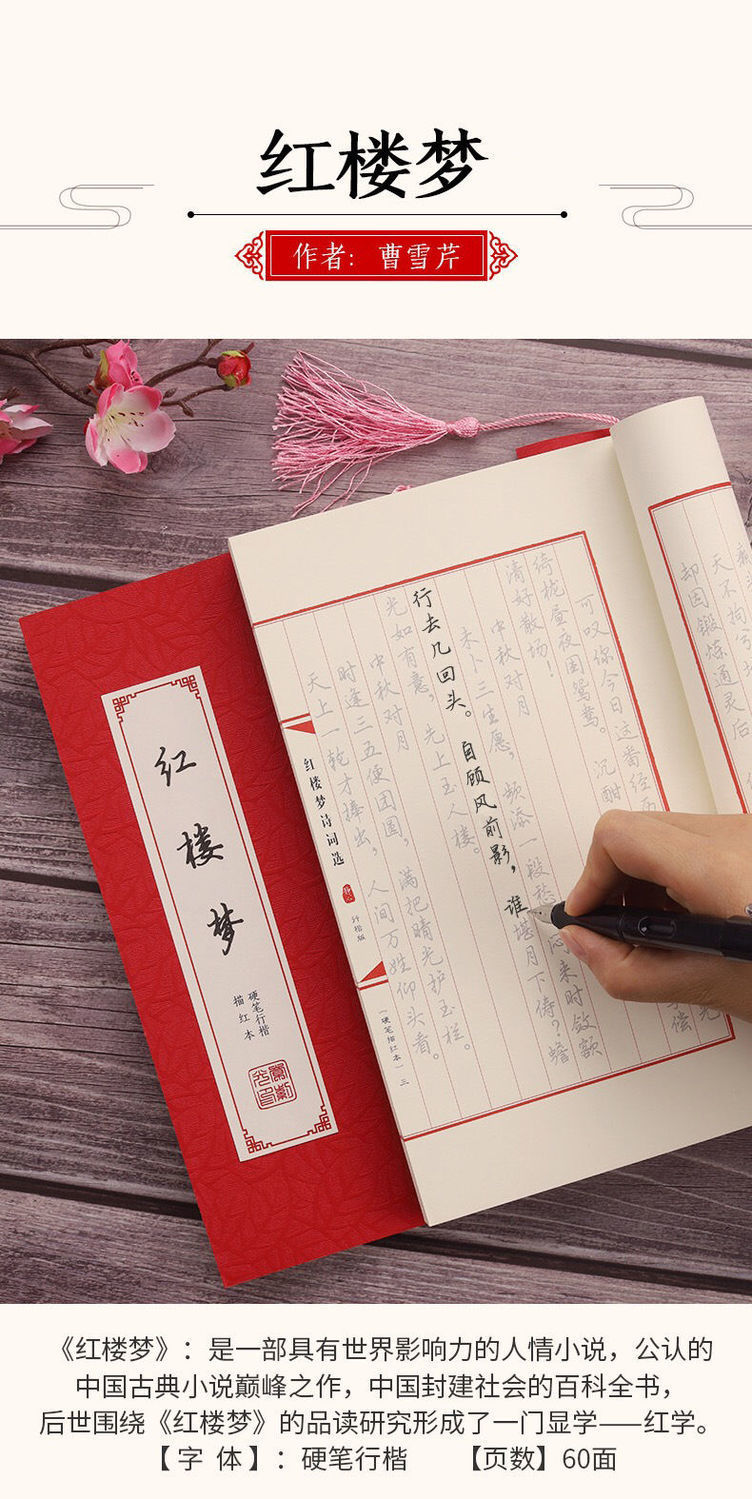 红楼梦
作者：曹雪芹
天不拘兮
却因锻炼通灵后
可叹你今日这番经
绮栊昼夜困鸳鸯。沉酣
清好散场！
中秋对月
未卜三生愿，频添一段愁。闷来时敛额
行去几回头。自顾风前影，谁堪月下俦？蟾
光如有意，先上玉人楼。
中秋对月
时逢三五便团圆，满把晴光护玉栏。
天上一轮才捧出，人间万姓仰头看。
红楼梦诗词选
行楷版
（硬笔描红本）三
红楼梦
硬笔行楷
描红本
《红楼梦》：是一部具有世界影响力的人情小说，公认的
中国古典小说巅峰之作，中国封建社会的百科全书，
后世围绕《红楼梦》的品读研究形成了一门显学——红学。
【字 体】：硬笔行楷 【页数】60面